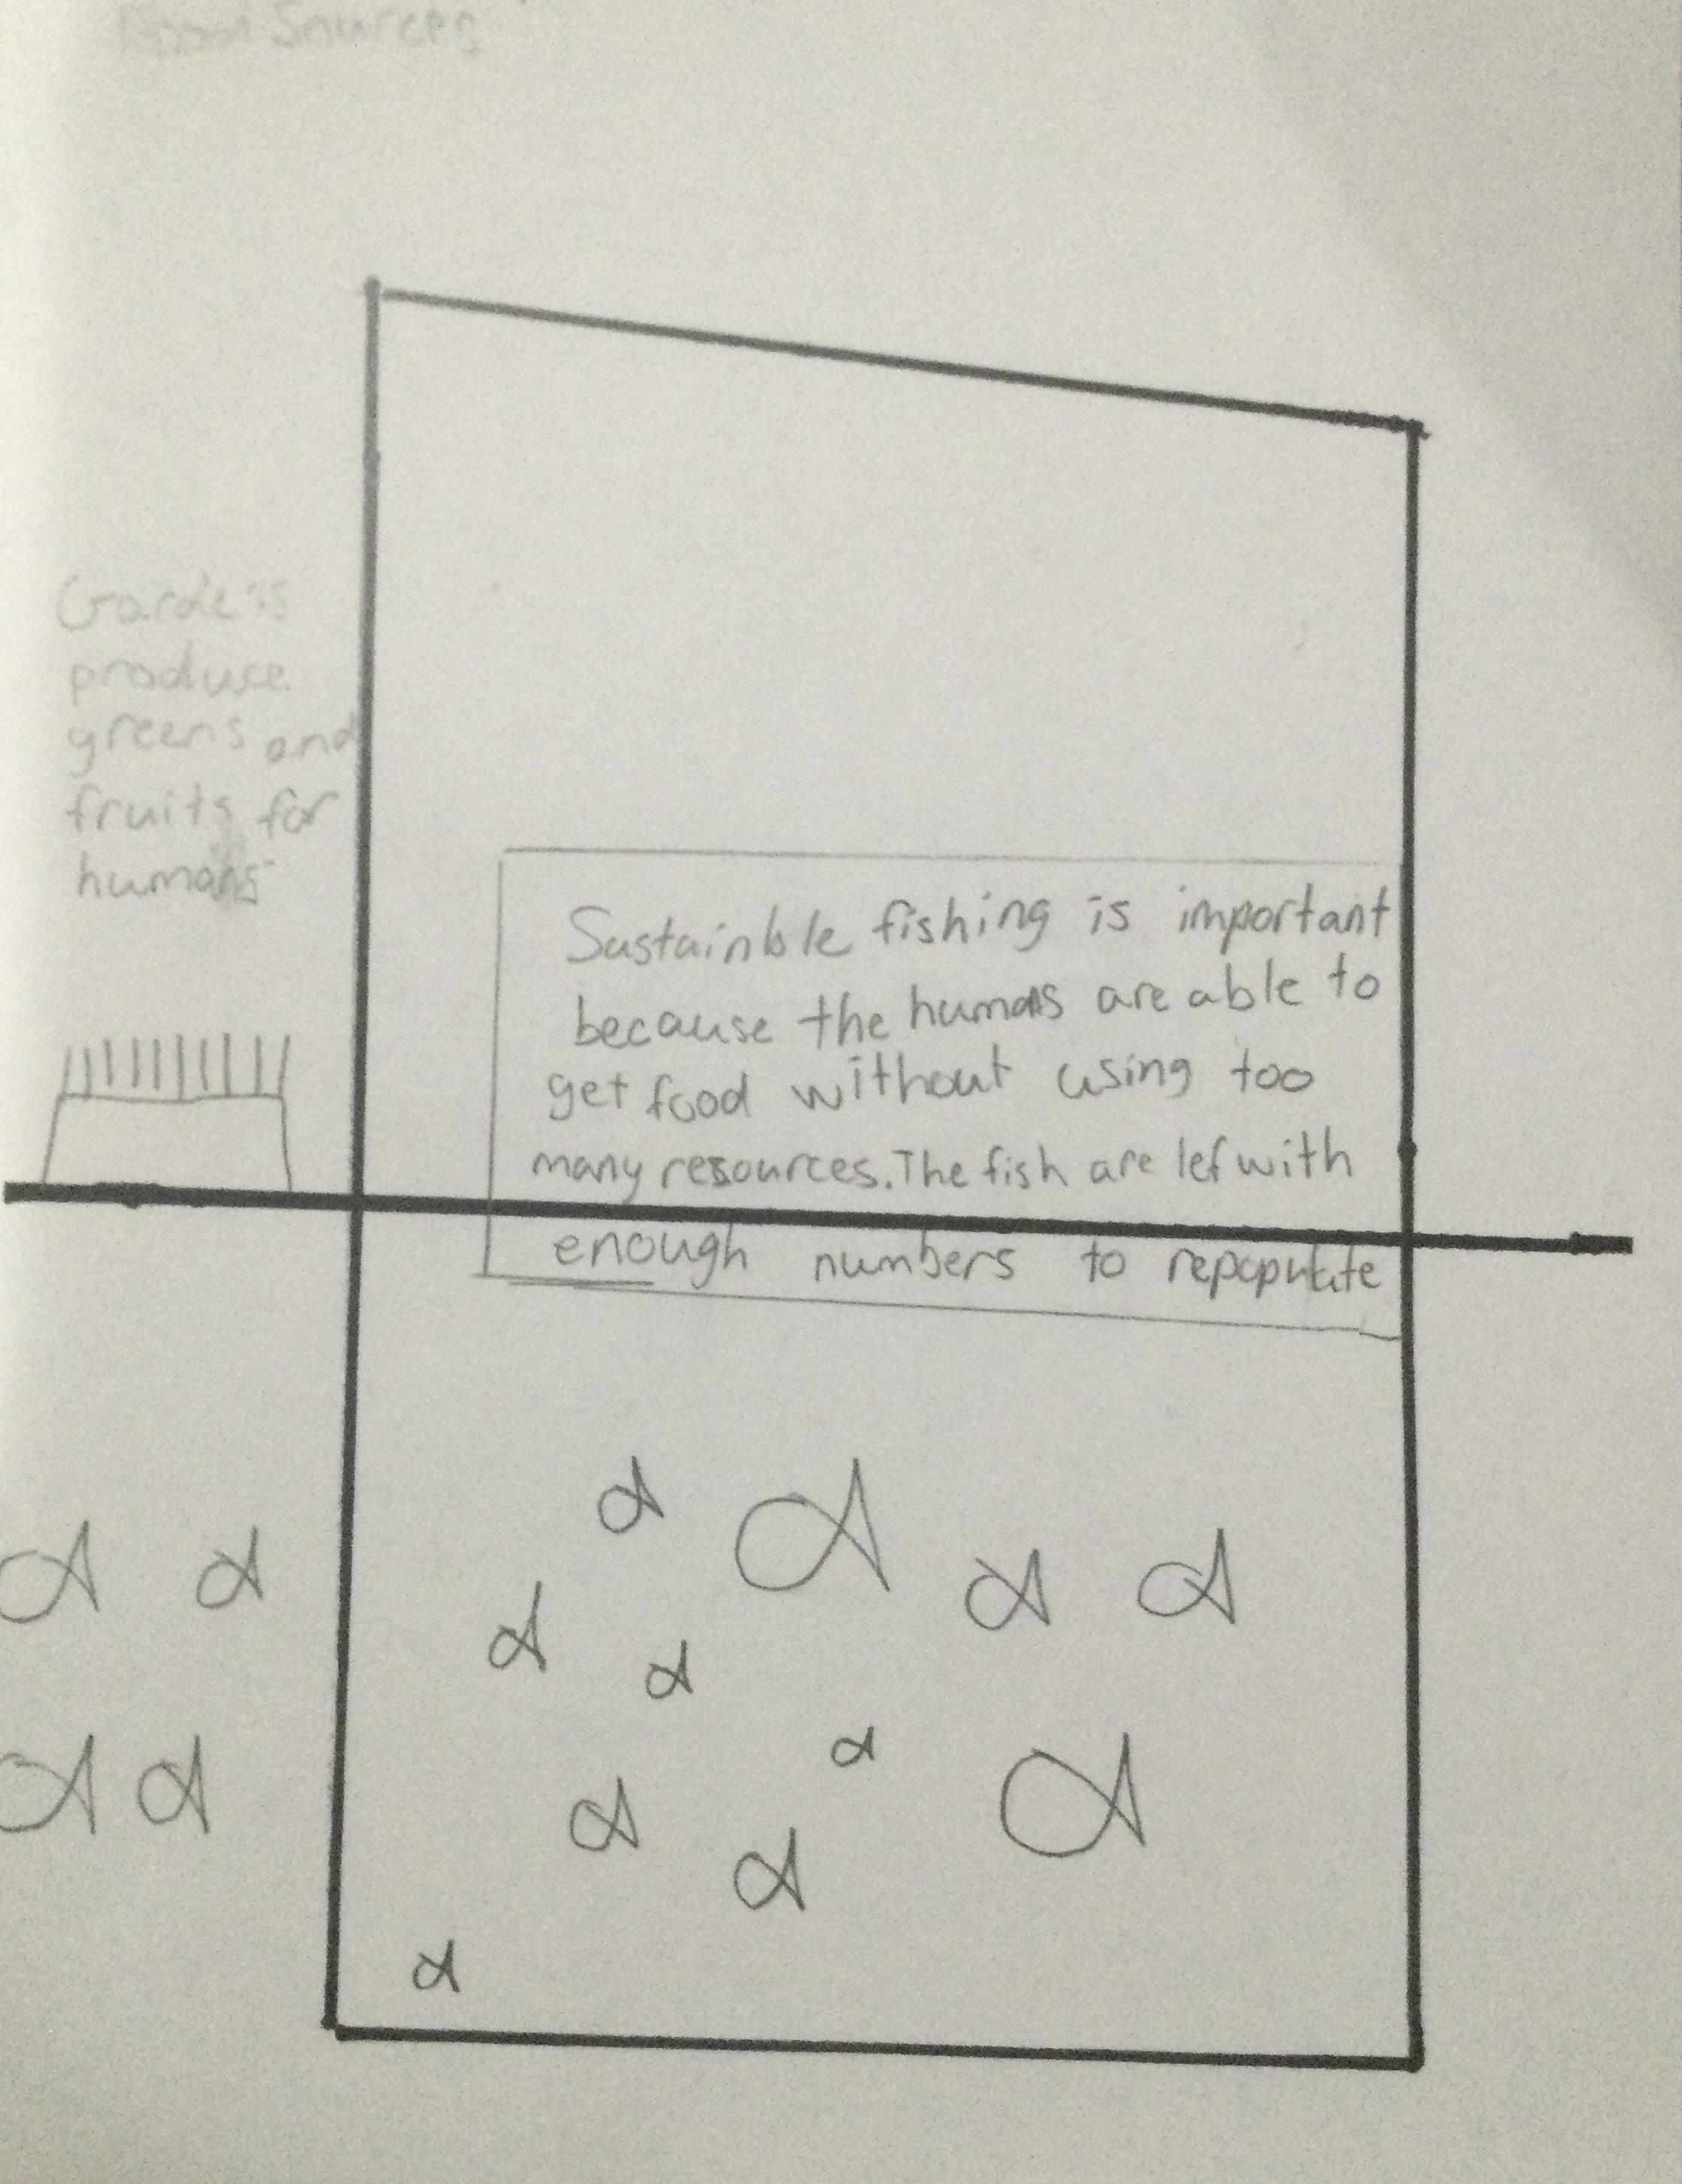 Food Sources
Gardens
produce
greens and
fruits for
humans
Sustainble fishing is important
because the humans are able to
get food without using too
many resources. The fish are lef with
enough numbers to repopulate